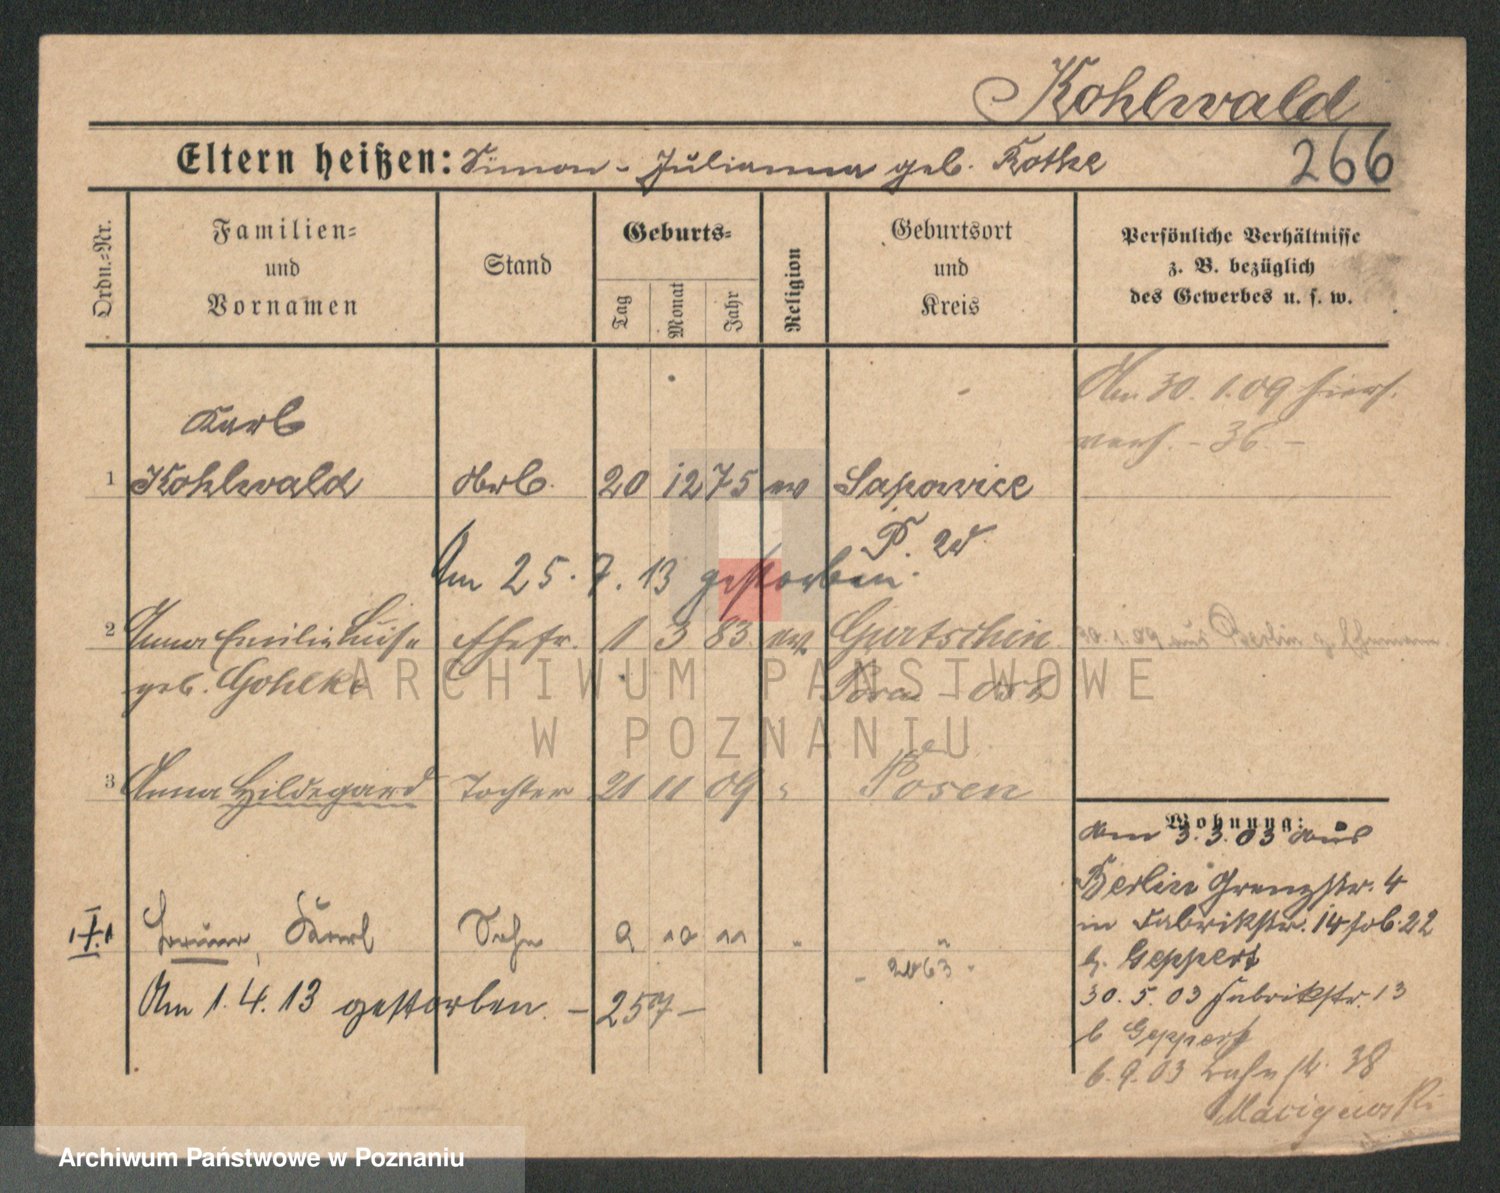 Kohlwald
Eltern heißen: Simon - Julianna geb. Kothe
266
Ordn.-Nr.
Familien-
und
Vornamen
Stand
Geburts-
Tag
Monat
Jahr
Religion
Geburtsort
und
Kreis
Persönliche Verhältnisse
z. B. bezüglich
des Gewerbes u. s. w.
Am 30. 1. 09 hiers.
verh. - 36. -
Karl
1 Kohlwald Arb. 20 12 75 ev Sapowice
P. W.
Am 25. 7. 13 gestorben.
2 Anna Emilie Luise Ehefr. 1 3 83. ev. Gurtschin 30.1.09 aus Berlin z. Ehemann
geb. Gohlke Posen - Ost
3 Anna Hildegard Tochter 21 11 09 " Posen
Karl Sohn 9 10 11 " "
Am 1. 4. 13 gestorben. - 257 -
Wohnung:
Am 3. 3. 03 aus
Berlin Grenzstr. 4
in Fabrikstr. 14
b. Geppert
30. 5. 03 Fabrikstr. 13
b Geppert
6. 9. 03 38
ARCHIWUM PAŃSTWOWE
W POZNANIU
Archiwum Państwowe w Poznaniu